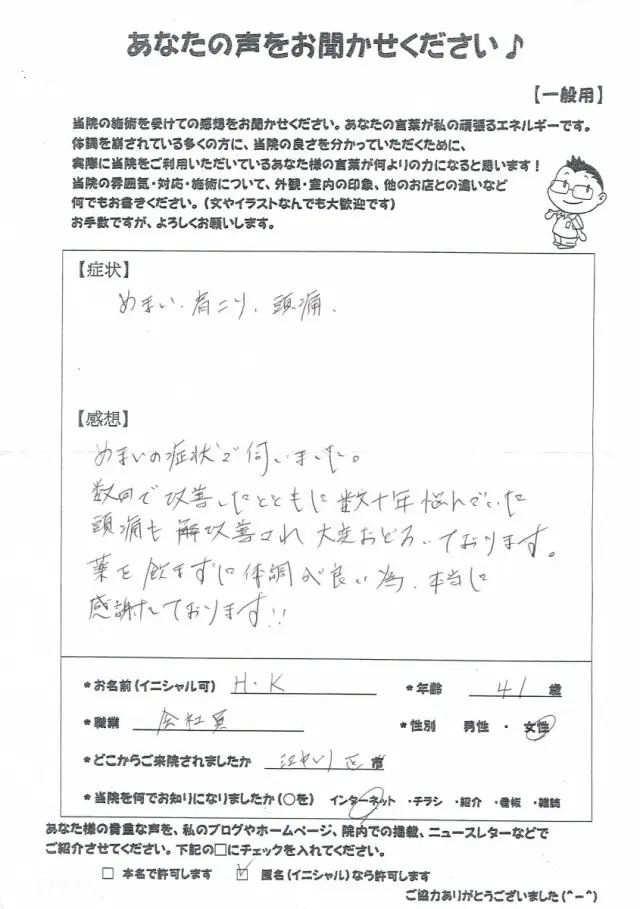 あなたの声をお聞かせください♪
【一般用】
当院の施術を受けての感想をお聞かせください。あなたの言葉が私の頑張るエネルギーです。
体調を崩されている多くの方に、当院の良さを分かっていただくために、
実際に当院をご利用いただいているあなた様の言葉が何よりの力になると思います！
当院の雰囲気・対応・施術について、外観・室内の印象、他のお店との違いなど
何でもお書きください。（文やイラストなんでも大歓迎です）
お手数ですが、よろしくお願いします。
【症状】
めまい、肩こり、頭痛.
【感想】
めまいの症状で伺いました。
数回で改善したとともに数十年悩んでいた
頭痛も改善され大変おどろいております。
薬を飲まずに体調が良い為、本当に
感謝しております!!
*お名前（イニシャル可） H・K *年齢 41 歳
*職業 会社員 *性別 男性 ・ 女性
*どこからご来院されましたか 江戸川区
*当院を何でお知りになりましたか（○を） インターネット ・チラシ ・紹介 ・看板 ・雑誌
あなた様の貴重な声を、私のブログやホームページ、院内での掲載、ニュースレターなどで
ご紹介させてください。下記の□にチェックを入れてください。
□ 本名で許可します ☑ 匿名（イニシャル）なら許可します
ご協力ありがとうございました(^-^)